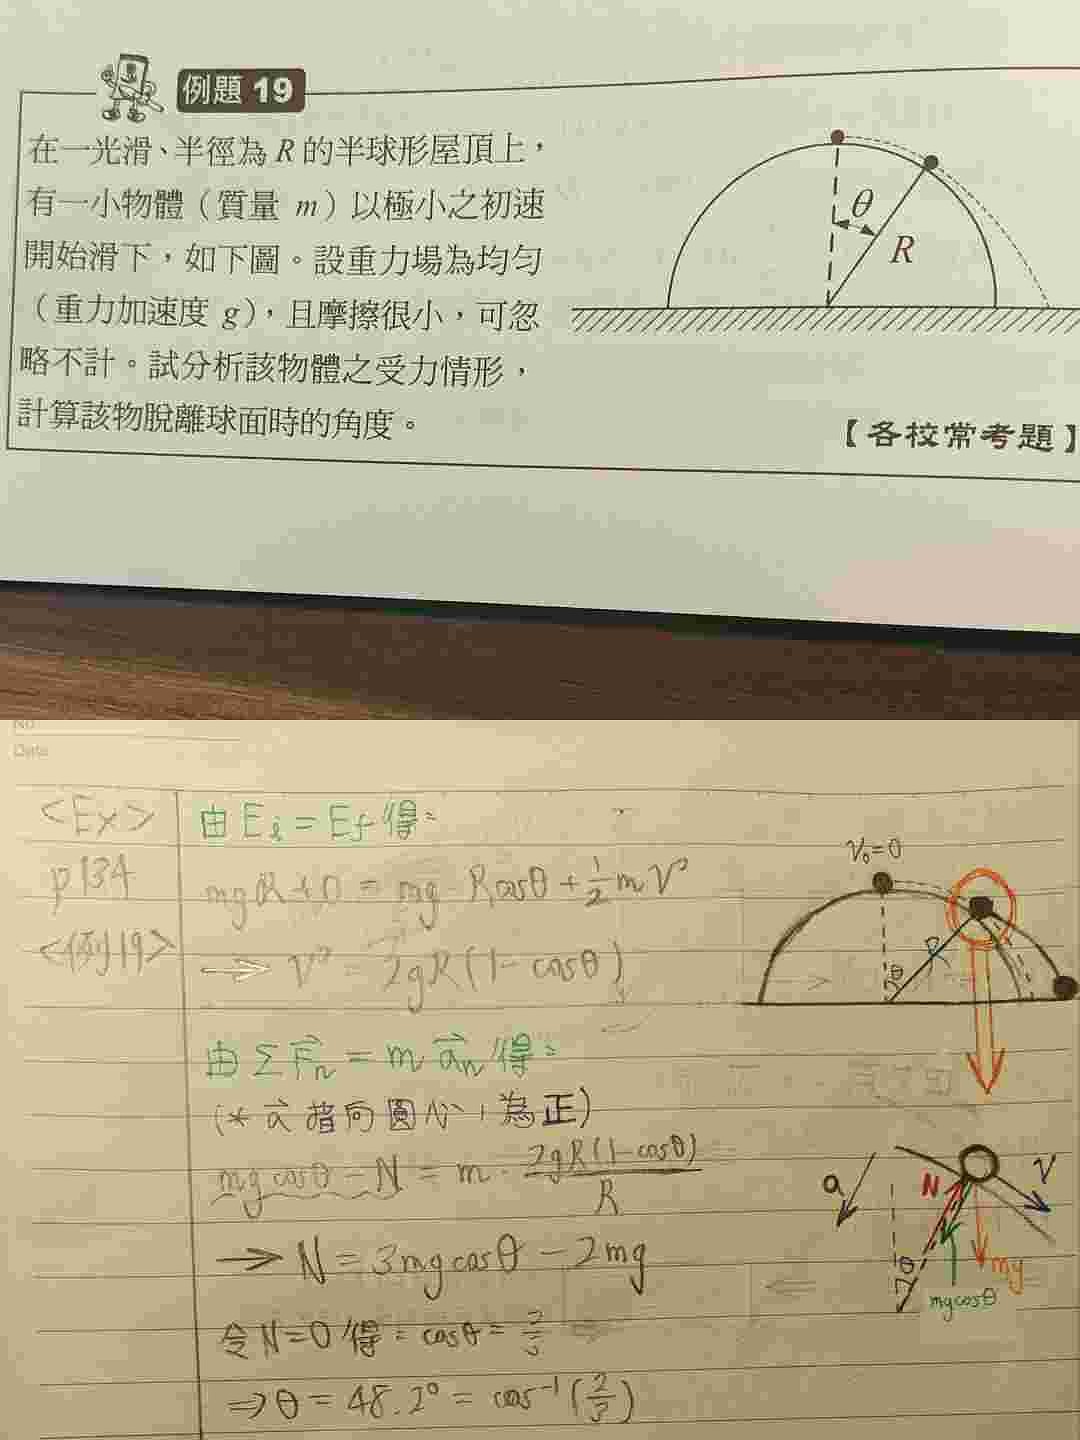 例題 19
在一光滑、半徑為 R 的半球形屋頂上，
有一小物體（質量 m）以極小之初速
開始滑下，如下圖。設重力場為均勻
（重力加速度 g），且摩擦很小，可忽
略不計。試分析該物體之受力情形，
計算該物脫離球面時的角度。
θ
R
【各校常考題】
No.
Date
<Ex>
p134
<例19>
由 Ei = Ef 得：
mgR + 0 = mg · Rcosθ + 1/2 mV²
→ V² = 2gR(1-cosθ)
由 ΣF⃗n = m a⃗n 得：
(* a⃗ 指向圓心，為正)
mgcosθ - N = m · 2gR(1-cosθ)/R
→ N = 3mgcosθ - 2mg
令 N=0 得：cosθ = 2/3
⇒ θ = 48.2° = cos⁻¹(2/3)
V₀=0
θ
R
a
N
V
θ
mg
mgcosθ